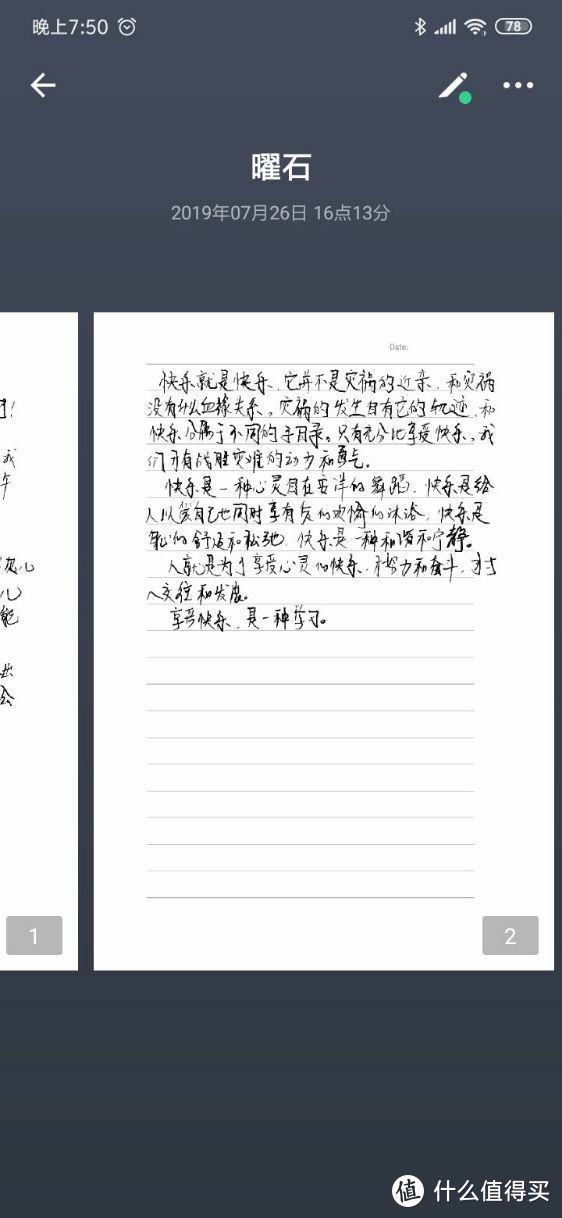 晚上7:50
78
曜石
2019年07月26日 16点13分
Date:
快乐就是快乐，它并不是灾祸的近亲，和灾祸
没有什么血缘关系，灾祸的发生自有它的轨迹，和
快乐分属于不同的子目录。只有充分地享受快乐，我
们才有战胜灾难的动力和勇气。
快乐是一种心灵自在安详的舞蹈，快乐是给
人以爱自己也同时享有爱的欢愉的沐浴，快乐是
的舒适和松弛，快乐是一种和谐和宁静。
人就是为了享受心灵的快乐，才努力和奋斗，才与
人交往和发展。
享受快乐，是一种学习。
我
能
会
1
2
值 什么值得买